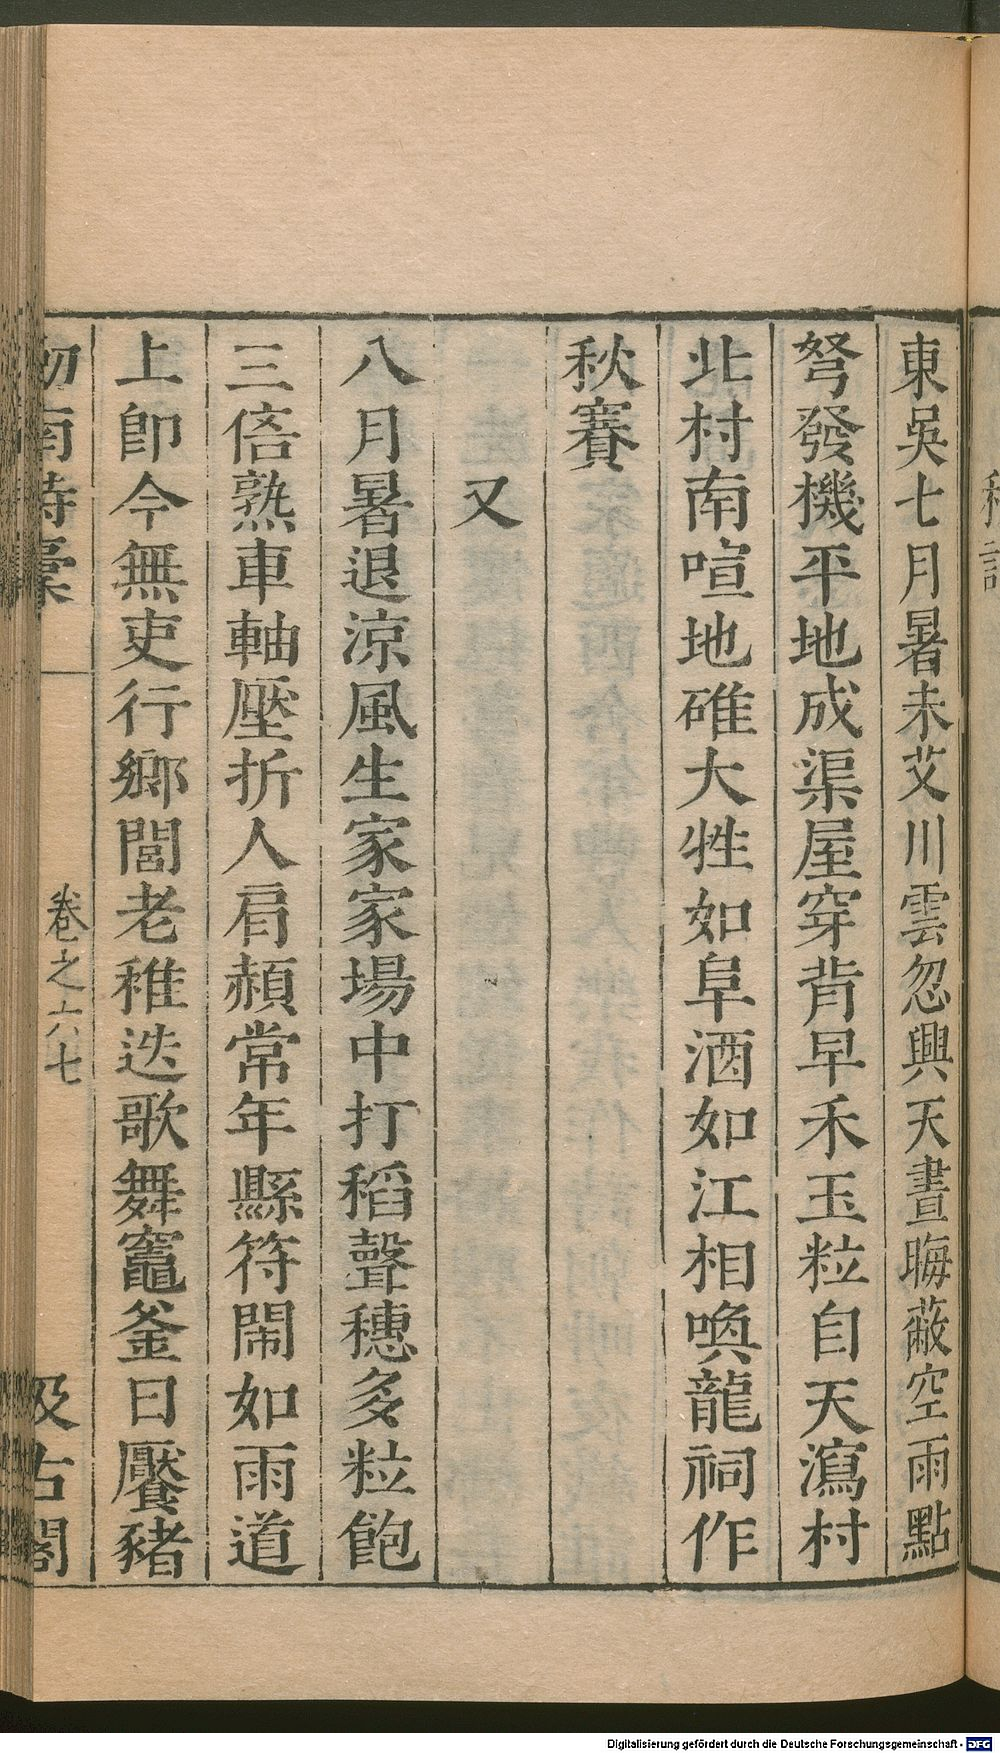 東吳七月暑未艾川雲忽興天晝晦蔽空雨點
弩發機平地成渠屋穿背早禾玉粒自天瀉村
北村南喧地碓大牲如阜酒如江相喚龍祠作
秋賽
又
八月暑退涼風生家家場中打稻聲穗多粒飽
三倍熟車軸壓折人肩赬常年縣符鬧如雨道
上即今無吏行鄉閭老稚迭歌舞竈釜日饜豬
劒南詩稾
卷之六七
汲古閣
Digitalisierung gefördert durch die Deutsche Forschungsgemeinschaft - DFG